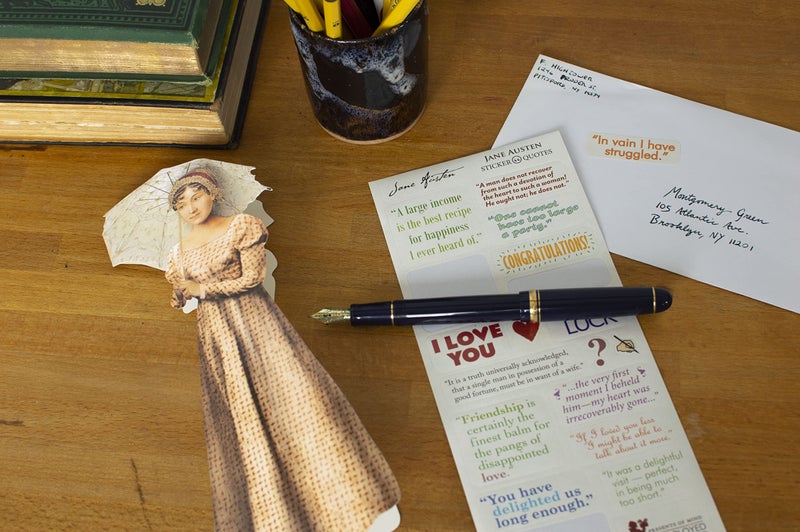 Jane Austen
JANE AUSTEN
STICKER QUOTES
"A large income
is the best recipe
for happiness
I ever heard of."
"A man does not recover
from such a devotion of
the heart to such a woman!
He ought not; he does not."
"One cannot
have too large
a party."
CONGRATULATIONS!
I LOVE
YOU
LUCK
?
"It is a truth universally acknowledged,
that a single man in possession of a
good fortune, must be in want of a wife."
"...the very first
moment I beheld
him—my heart was
irrevocably gone..."
"Friendship is
certainly the
finest balm for
the pangs of
disappointed
love."
"If I loved you less
I might be able to
talk about it more."
"It was a delightful
visit — perfect,
in being much
too short."
"You have
delighted us
long enough."
PRESENTS OF MIND
F. HIGHTOWER
PITTSFORD, NY
"In vain I have
struggled."
Montgomery Green
105 Atlantic Ave.
Brooklyn, NY 11201